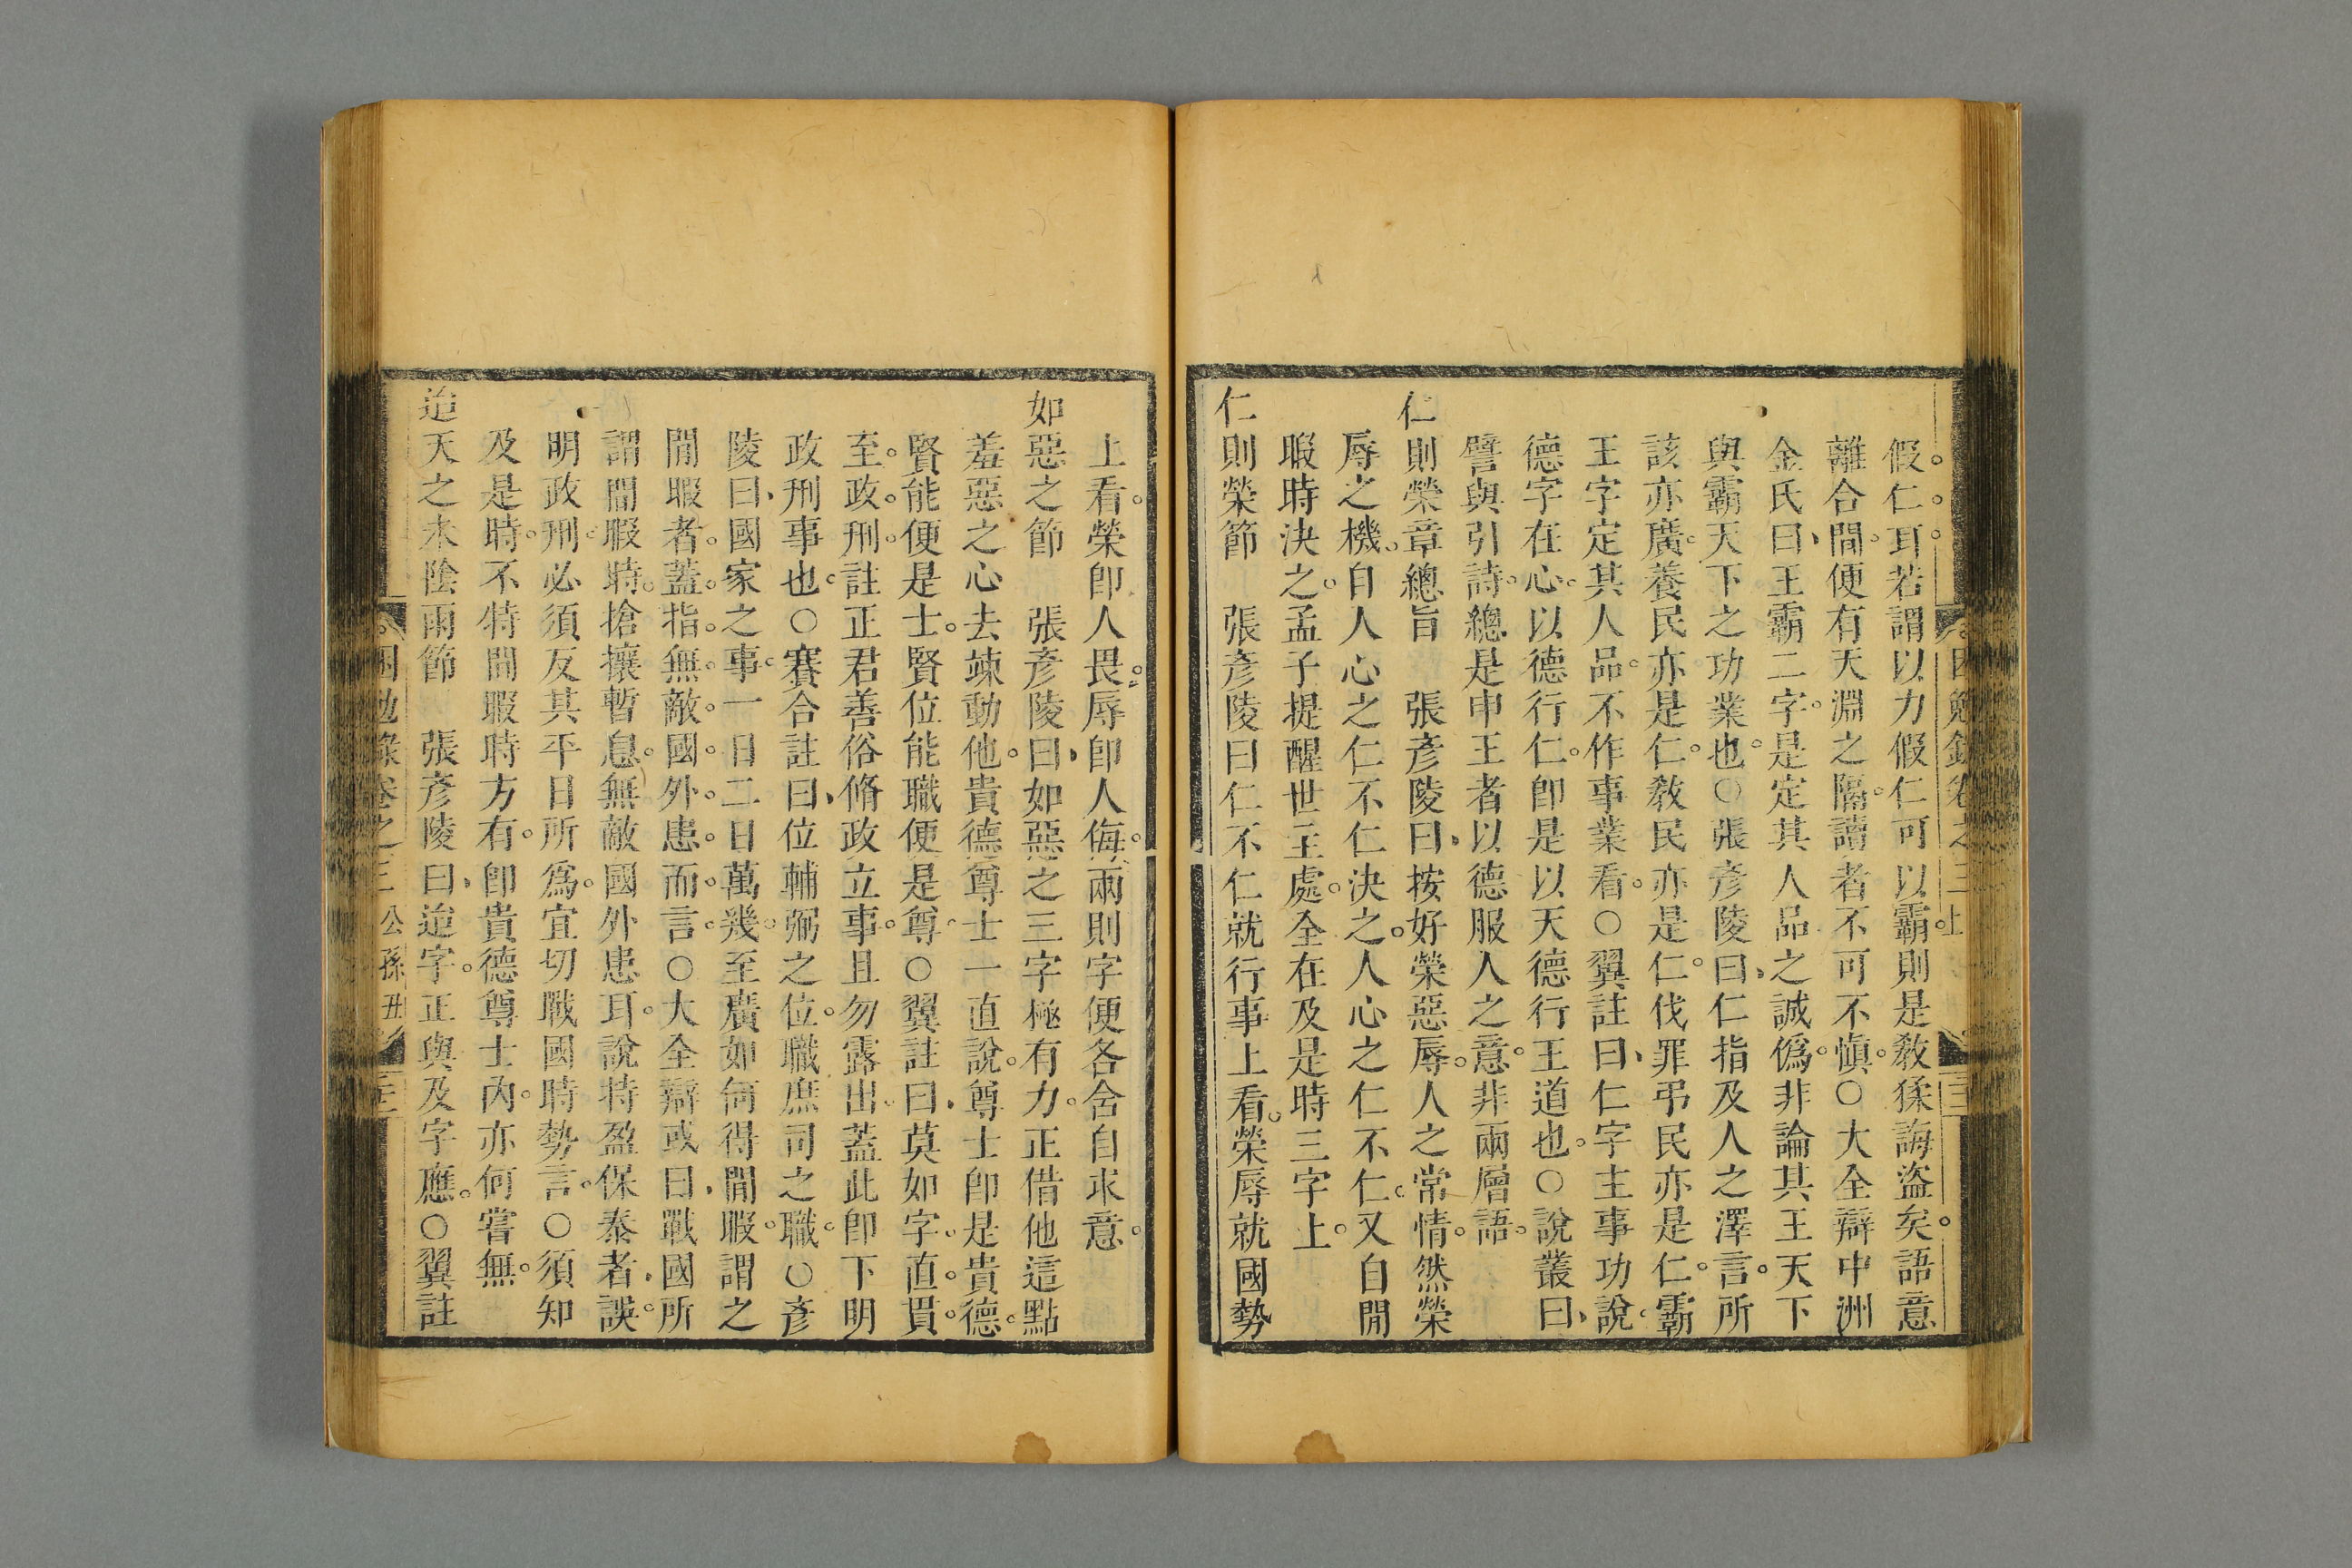 假仁耳若謂以力假仁可以霸則是敎猱誨盜矣語意
離合間便有天淵之隔讀者不可不愼○大全辯中洲
金氏曰王霸二字是定其人品之誠僞非論其王天下
與霸天下之功業也○張彥陵曰仁指及人之澤言所
該亦廣養民亦是仁敎民亦是仁伐罪弔民亦是仁霸
王字定其人品不作事業看○翼註曰仁字主事功說
德字在心以德行仁卽是以天德行王道也○說叢曰
譬與引詩總是申王者以德服人之意非兩層語
仁則榮章總旨 張彥陵曰按好榮惡辱人之常情然榮
辱之機自人心之仁不仁決之人心之仁不仁又自閒
暇時決之孟子提醒世主處全在及是時三字上
仁則榮節 張彥陵曰仁不仁就行事上看榮辱就國勢
上看榮卽人畏辱卽人侮兩則字便各含自求意
如惡之節 張彥陵曰如惡之三字極有力正借他這點
羞惡之心去竦動他貴德尊士一直說尊士卽是貴德
賢能便是士賢位能職便是尊○翼註曰莫如字直貫
至政刑註正君善俗脩政立事且勿露出蓋此卽下明
政刑事也○賽合註曰位輔弼之位職庶司之職○彥
陵曰國家之事一日二日萬幾至廣如何得閒暇謂之
閒暇者蓋指無敵國外患而言○大全辯或曰戰國所
謂閒暇時搶攘暫息無敵國外患耳說持盈保泰者誤
明政刑必須反其平日所爲宜切戰國時勢言○須知
及是時不特閒暇時方有卽貴德尊士內亦何嘗無
迨天之未陰雨節 張彥陵曰迨字正與及字應○翼註
困勉錄卷之三 公孫丑